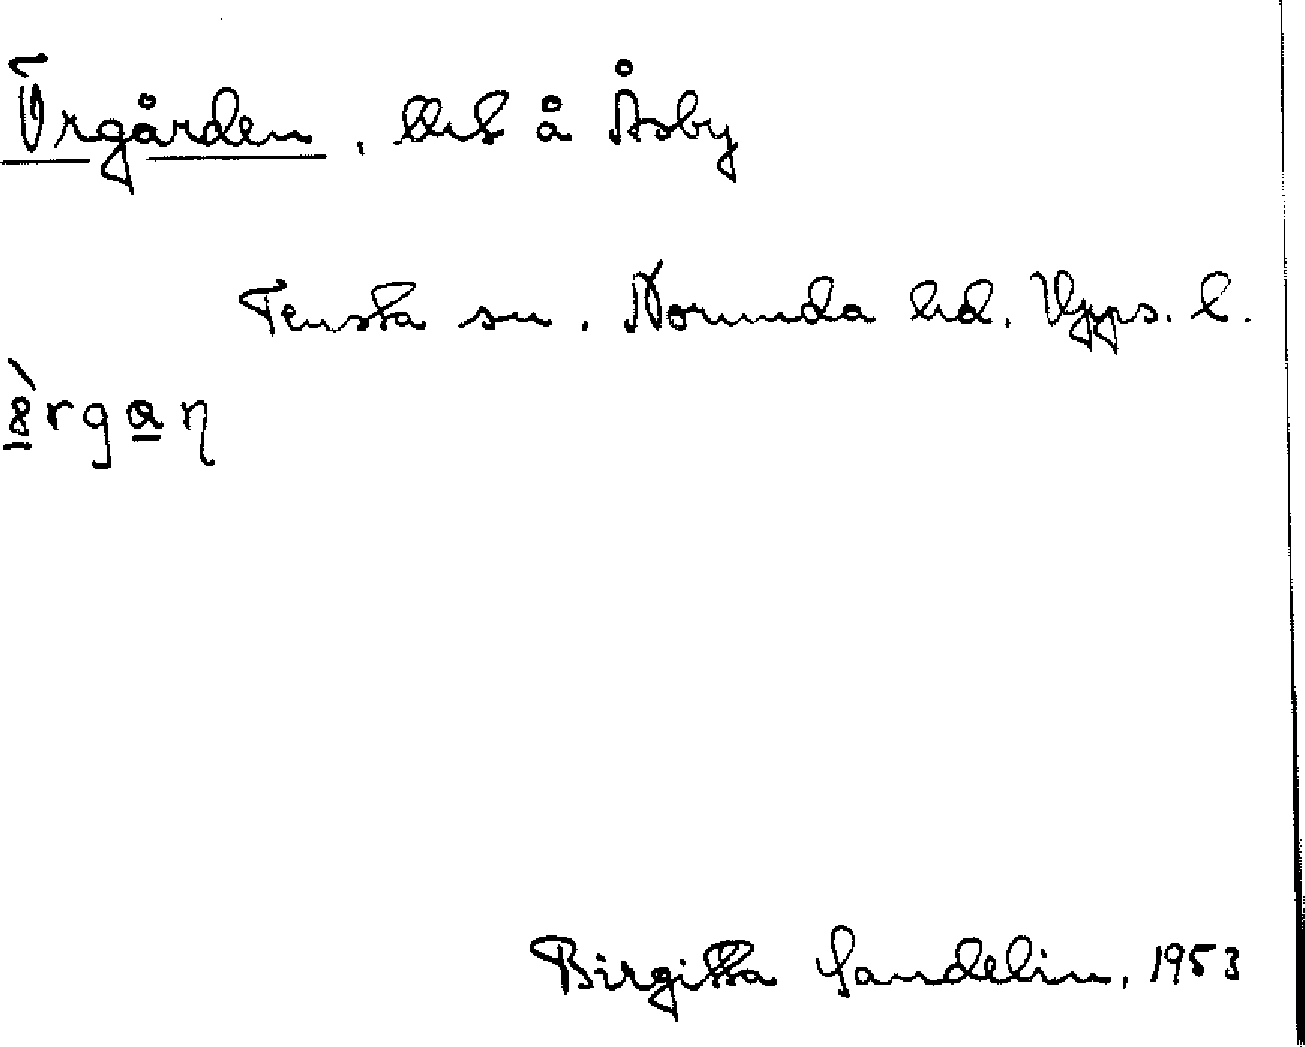 Örgården, del å Åsby
Tensta sn. Norunda hd. Upps. l.
Birgitta Sandelin, 1953